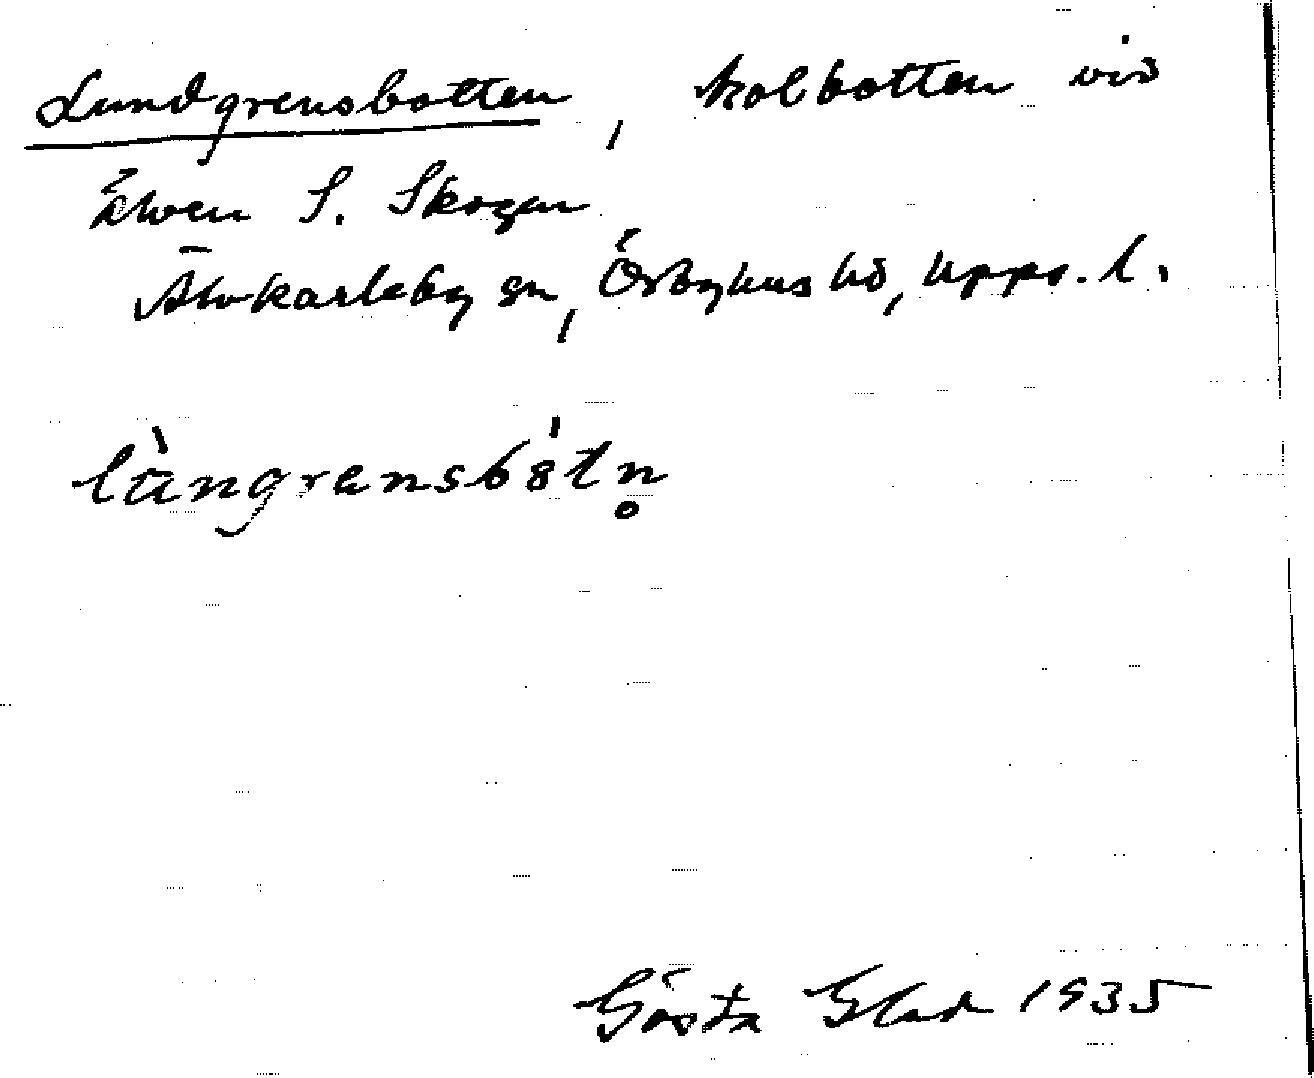 Lundgrensbotten, kolbotten vid
älven S. Skogen
Älvkarleby sn, Örbyhus hd, Upps. l.
Gösta Blad 1935